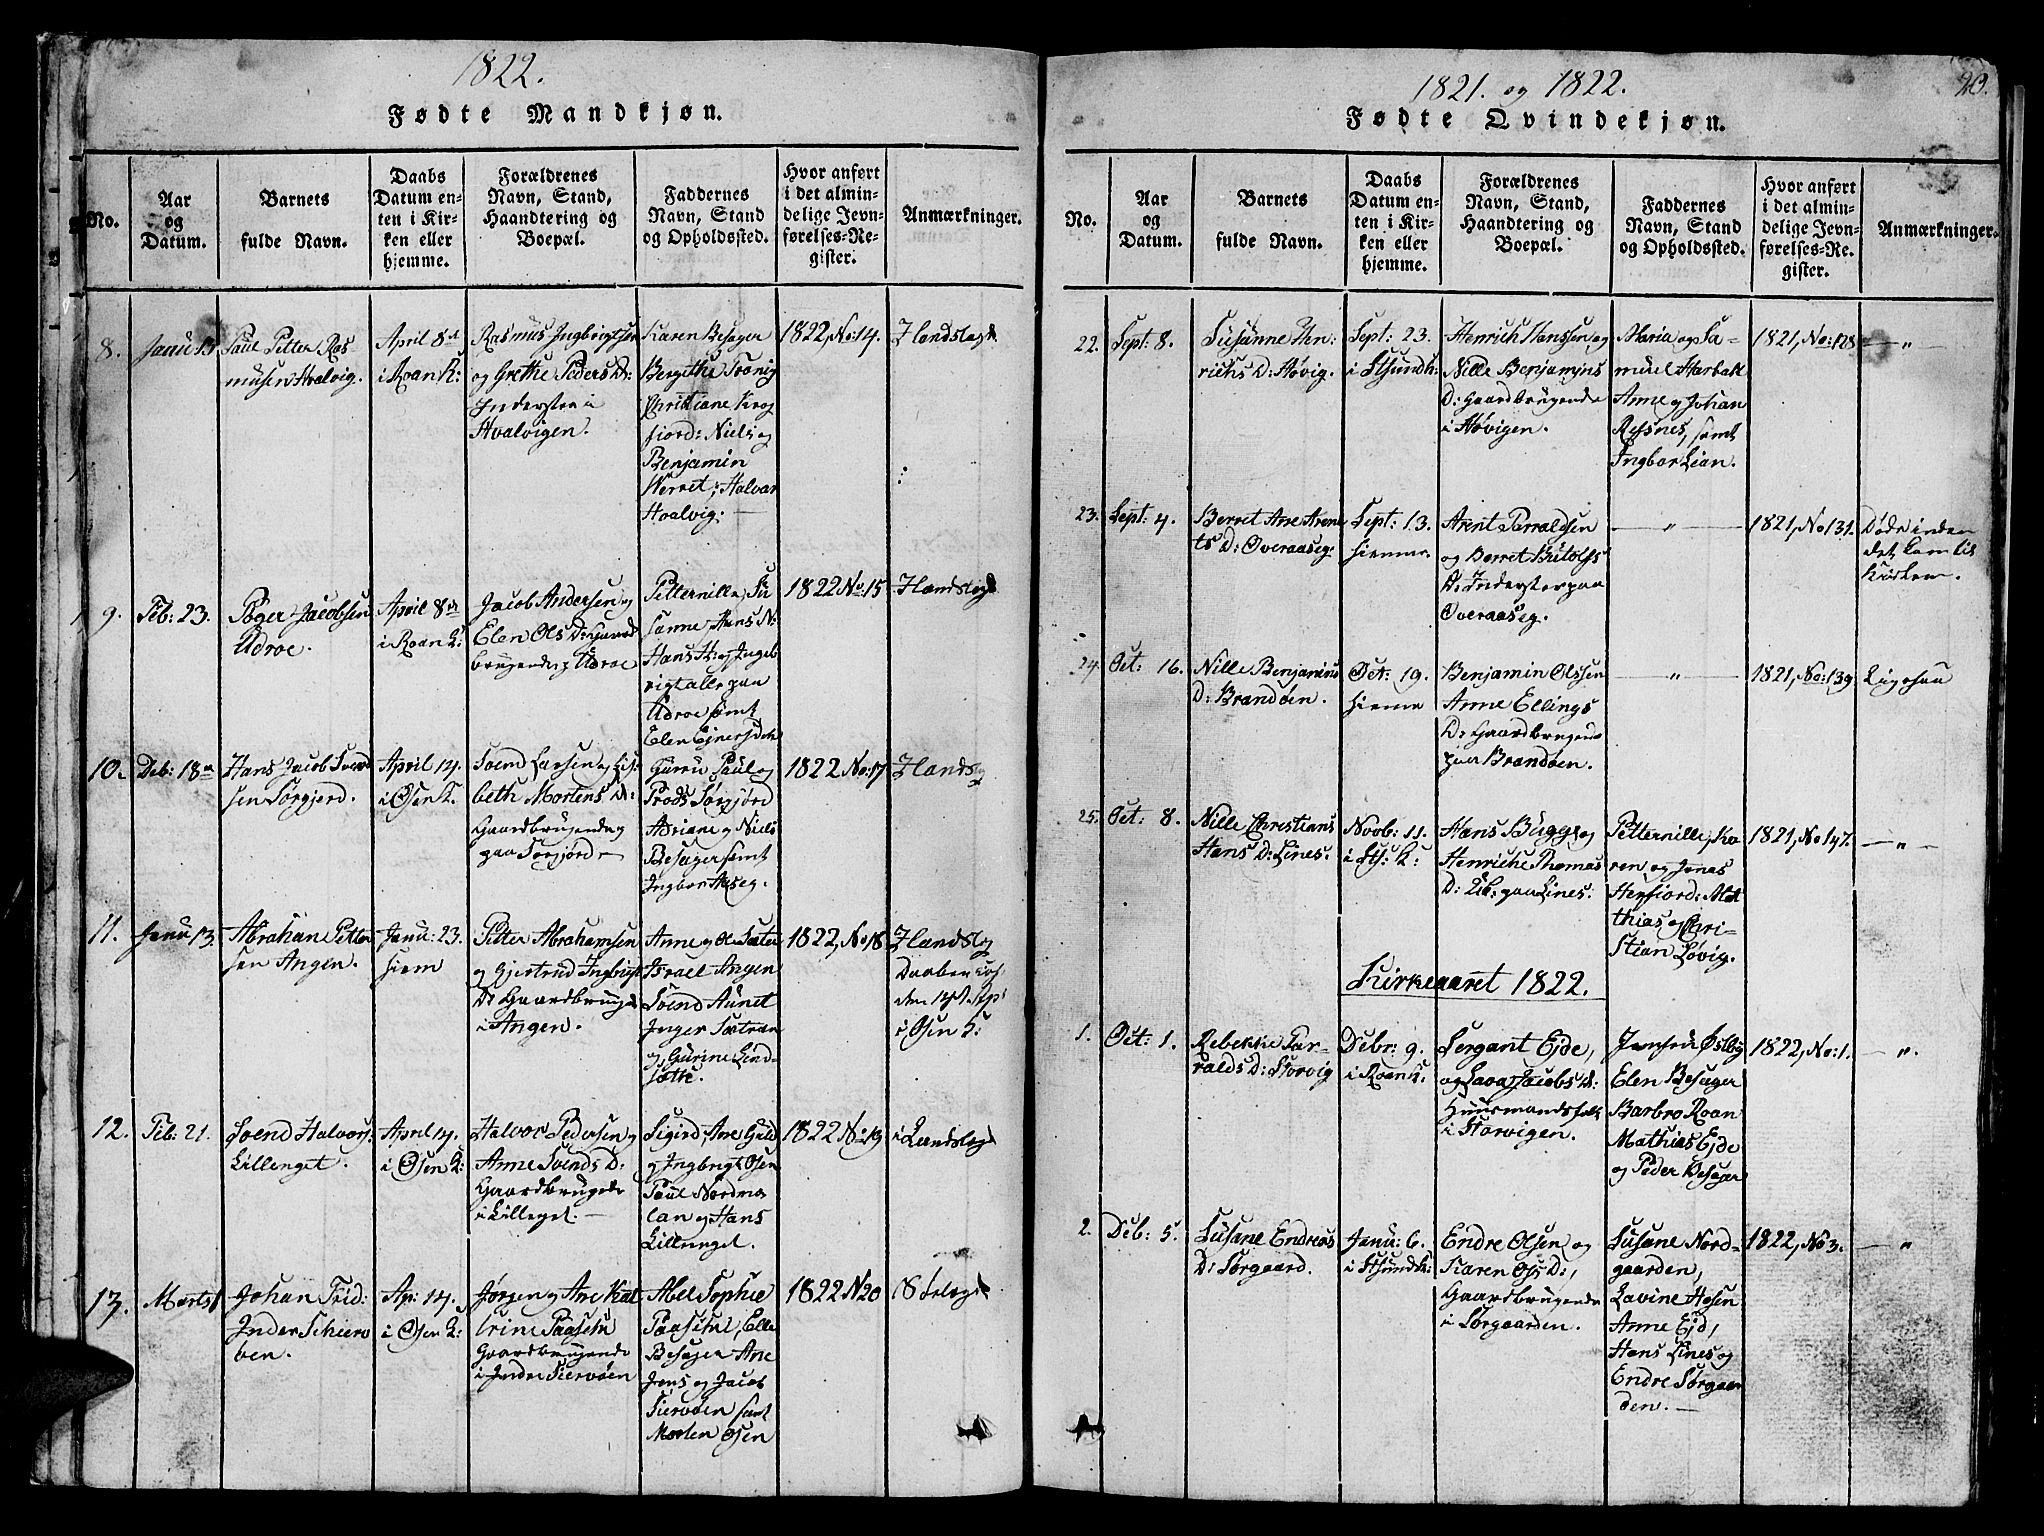 1822.
Fødte Mandkjøn.
No.
Aar
og
Datum.
Barnets
fulde Navn.
Daabs
Datum en-
ten i Kir-
ken eller
hjemme.
Forældrenes
Navn, Stand,
Haandtering og
Boepæl.
Faddernes
Navn, Stand
og Opholdssted.
Hvor anført
i det almin-
delige Jevn-
førelses-Re-
gister.
Anmærkninger.
8.
Janu 15
Paul Petter Ras-
musen Hvalvig.
April 8de
i Roan K:
Rasmus Ingbrigtsen
og Grethe Peders D:
Inderster i
Hvalvigen.
Karen Besager
Bergithe
Christiane Krog
fiord: Niels og
Benjamin
Werret; Halvar
Hvalvig.
1822, No: 14.
9.
Feb: 23.
Roger Jacobsen
Udroe.
April 8de
i Roan K:
Jacob Andersen og
Elen Ols D: Gaard
brugende Udroe
Petternille, Su
sanne, Hans N:
Hans H: og Ingeb
rigt alle paa
Udroe samt
Elen
1822 No: 15
10.
Deb: 18de
Hans Jacob Svend
sen Sørgjerd.
April 14.
i Osen K.
Svend Larsen og Lis-
beth Mortens D:
Gaardbrugende
paa Sørjord
Guru, Paul og
Trods Sørgjord
Adriane og Niels
Besager samt
Ingbor Aaseg.
1822 No: 17
11.
Janu 13.
Abraham Petter
sen Angen.
Janu: 23.
hiem
Petter Abrahamsen
og Gjertrud Ingbrigt
D: Gaardbruge
i Angen.
Anne og Ole Sæter
Israel Angen
Svend Aunet
Inger Sætran
og Gurine Lind-
sætte.
1822, No 18
i Osen K:
12.
Feb: 21.
Svend Halvors:
Lillenget.
April 14.
i Osen K:
Halvor Pedersen og
Anne Svends D:
Gaardbrugende
i Lillenget.
Sigird, Ane Guld
og Ingbrigt Osen
Paul Nordme
lan og Hans
Lillenget.
1822 No 19
13.
Marts 1
Johan Frid:
Inder Schierv
øen.
Ap: 14.
i Osen K:
Jørgen og Ane Kat
trine Paasche
Gaardbrugende
i Indre Kiervøen
Abel Sophie
Paasche, Elle
Besager Ane
Jens og Jacob
Kiervøen samt
Morten Osen
1822 N 20
1821. og 1822.
20.
Fødte Qvindekjøn.
No.
Aar
og
Datum.
Barnets
fulde Navn.
Daabs
Datum en-
ten i Kir-
ken eller
hjemme.
Forældrenes
Navn, Stand,
Haandtering og
Boepæl.
Faddernes
Navn, Stand
og Opholdssted.
Hvor anført
i det almin-
delige Jevn-
førelses-Re-
gister.
Anmærkninger.
22.
Sept: 8.
Susanne Hen:
richs D: Høvig.
Sept: 23.
i Stsundk:
Henrich Hanssen og
Nille Benjamins
D: Gaardbrugende
i Høvigen.
Maria og Sa-
muel Harbak
Anne og Johan
Refsnes, samt
Ingbor Lian.
1821, No: 128
— " —
23.
Sept: 4.
Berret Ane Aren
ts D: Overaaseg.
Sept: 13.
hiemme.
Arent Parraldsen
og Berret Butolfs
D: Inderster paa
Overaaseg.
— " —
1821, No 131.
Døde inden
det kom til
Kirken.
24.
Oct: 16.
Nille Benjamins
D: Brandøen.
Oct: 19.
hieme
Benjamin Olssen
Anne Ellings
D: Gaardbrugende
paa Brandøen.
— " —
1821, No: 139
Ligesaa
25.
Oct: 8.
Nille Christians
Hans D: Lines.
Novb: 11.
i Sts: K:
Hans Bugge og
Henriche Thomas
D: Lib: paa Lines.
Petternille, Ka
ren og Jonas
Herfiord: Mat
thias og Chri-
stian Løvig.
1821, No 147.
— " —
Kirkeaaret 1822.
1.
Oct: 1.
Rebekke Par-
ralds D: Storvig
Debr: 9.
i Roan K:
Sergant Ejde,
og Jacobs D:
Huusmandsfolk
i Storvigen.
Østby
Elen Besager
Barbro Roan
Mathias Ejde
og Peder Besager
1822, No: 1.
— " .
2.
Deb: 5.
Susane Endreas
D: Sørgaard.
Janu: 6.
i Stsundk:
Endre Olsen og
Karen Ols D:,
Gaardbrugende
i Sørgaarden.
Susane Nord-
gaarden,
Lavine Hosen
Anne Ejd,
Hans Lines og
Endre Sørgaar
den. —
1822, No 3.
— "